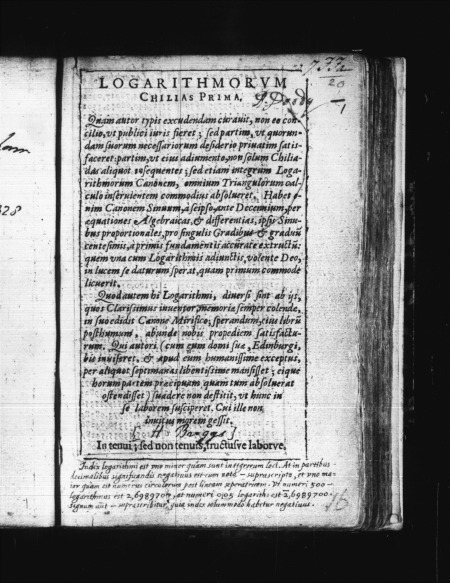 LOGARITHMORVM
CHILIAS PRIMA,
Quam autor typis excudendam curauit, non eo con-
cilio, vt publici iuris fieret; sed partim, vt quorun-
dam suorum necessariorum desiderio priuatim satis-
faceret: partim, vt eius adiumento, non solum Chilia-
das aliquot insequentes; sed etiam integrum Loga-
rithmorum Canonem, omnium Triangulorum cal-
culo inseruientem commodius absolueret. Habet e-
nim Canonem Sinuum, a seipso, ante Decennium, per
aequationes Algebraicas, & differentias, ipsis Sinu-
bus proportionales, pro singulis Gradibus & graduū
centesimis, a primis fundamentis accurate extructū:
quem vna cum Logarithmis adiunctis, volente Deo,
in lucem se daturum sperat, quam primum commode
licuerit.
Quod autem hi Logarithmi, diuersi sint ab ijs,
quos Clarissimus inuentor, memoriae semper colendae,
in suo edidit Canone Mirifico; sperandum, eius librū
posthumum, abunde nobis propediem satisfactu-
rum. Qui autori (cum eum domi suae, Edinburgi,
bis inuiseret, & apud eum humanissime exceptus,
per aliquot septimanas libentissime mansisset; eique
horum partem praecipuam quam tum absoluerat
ostendisset) suadere non destitit, vt hunc in
se laborem susciperet. Cui ille non
inuitus morem gessit.
[H Briggs]
In tenui; sed non tenuis, fructusve laborve.
Index logarithmi est vno minor quam sunt integrorum loci. At in partibus
decimalibus significandis negatiuus est cum nota – suprascripto, et vno ma-
ior quam sit numerus circulorum post lineam separatricem. Vt numeri 500 –
logarithmus est 2,6989700, at numeri 0,05 logarith: est 2,6989700 –
signum – suprascribitur, quia index solummodo habetur negatiuus.
328
20
1
16